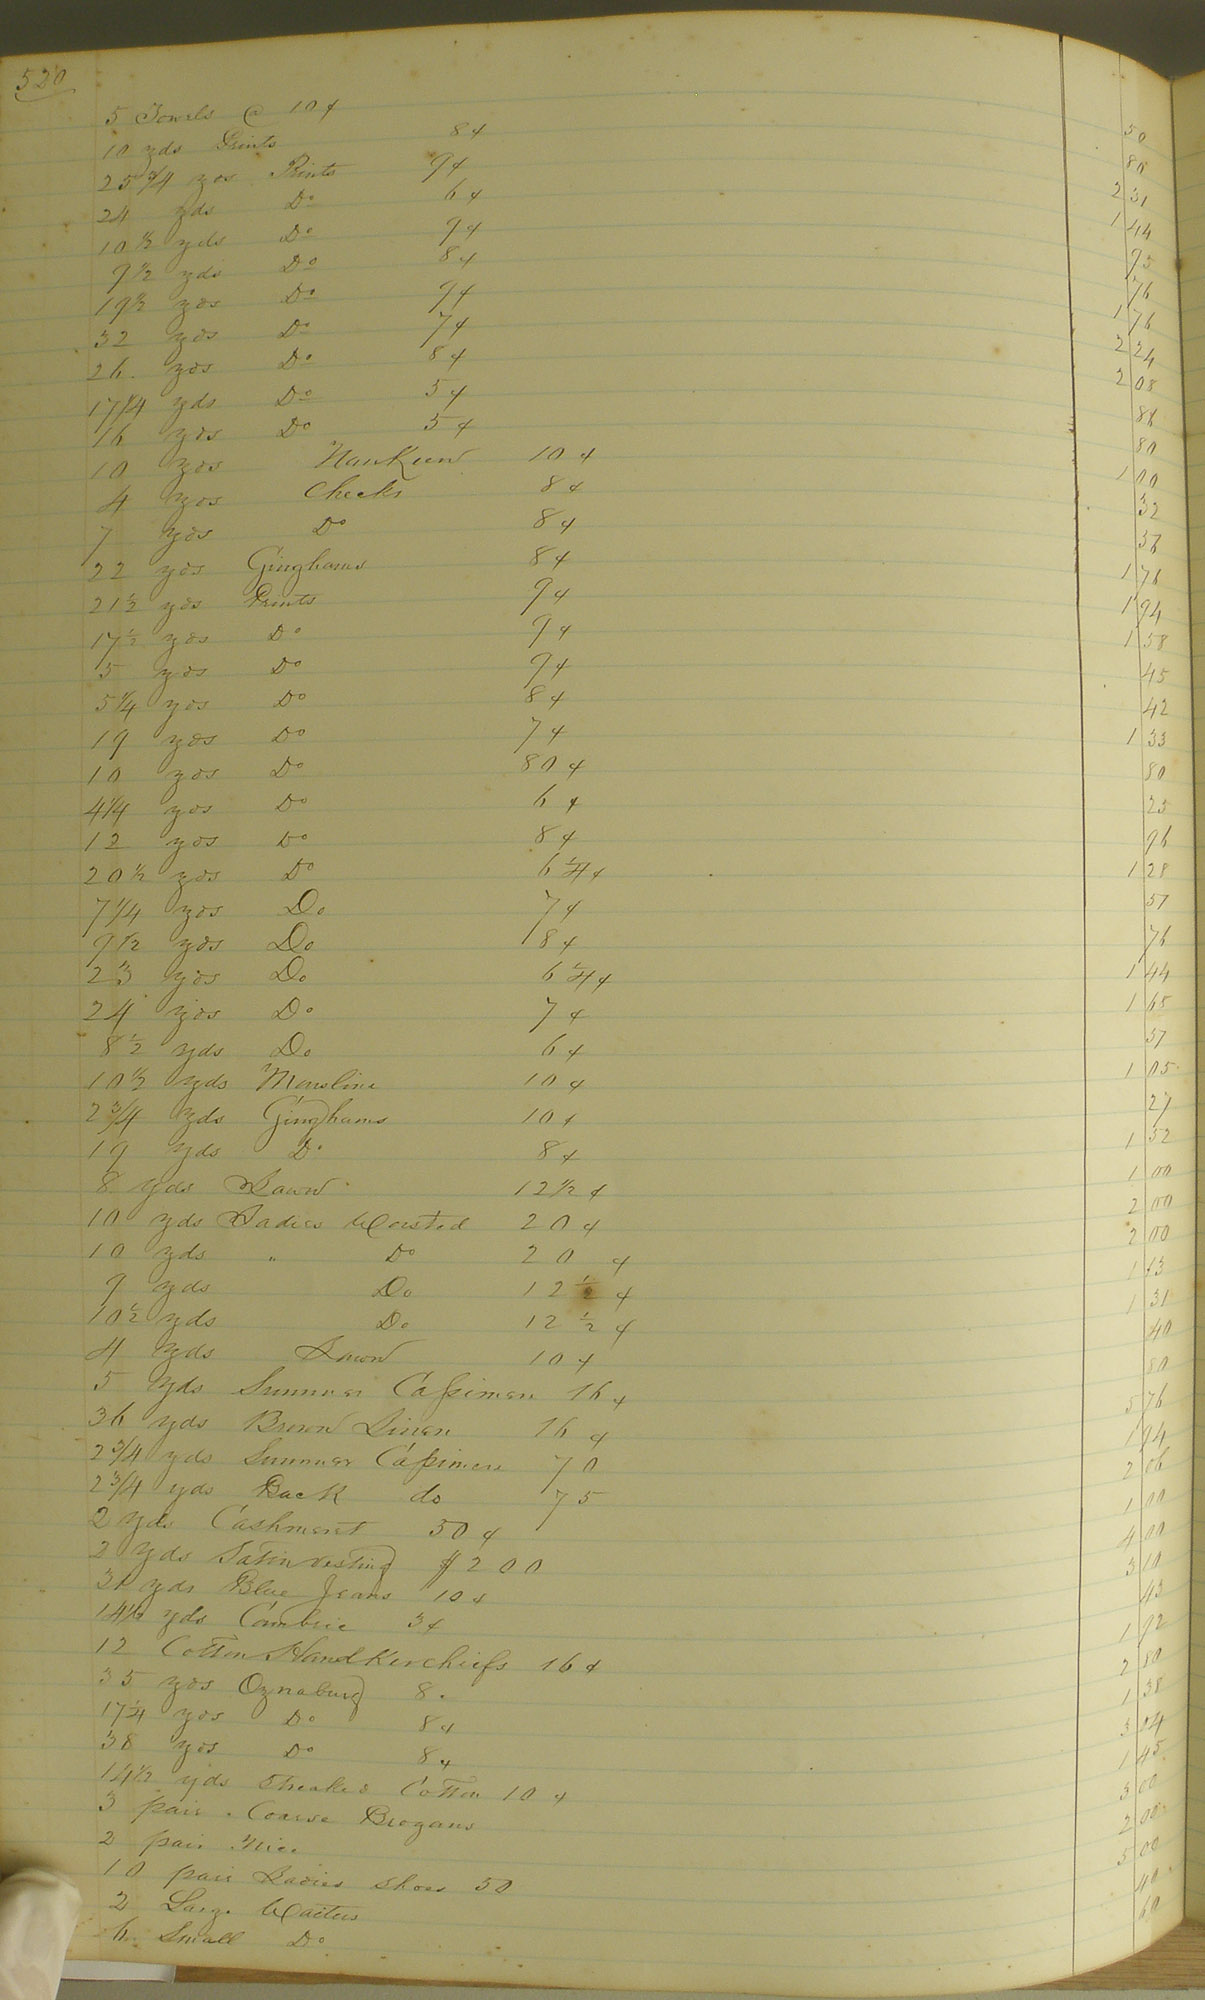 520
5 Towels @ 10 ¢ 50
10 yds Prints 8 ¢ 80
25 3/4 yds Prints 9 ¢ 2 31
24 yds Do 6 ¢ 1 44
10 1/2 yds Do 9 ¢ 95
9 1/2 yds Do 8 ¢ 76
19 1/2 yds Do 9 ¢ 1 76
32 yds Do 7 ¢ 2 24
26 yds Do 8 ¢ 2 08
17 1/4 yds Do 5 ¢ 86
16 yds Do 5 ¢ 80
10 yds Nankeen 10 ¢ 1 00
4 yds Checks 8 ¢ 32
7 yds Do 8 ¢ 56
22 yds Ginghams 8 ¢ 1 76
21 1/2 yds Prints 9 ¢ 1 94
17 1/2 yds Do 9 ¢ 1 58
5 yds Do 9 ¢ 45
5 1/4 yds Do 8 ¢ 42
19 yds Do 7 ¢ 1 33
10 yds Do 80 ¢ 80
4 1/4 yds Do 6 ¢ 25
12 yds Do 8 ¢ 96
20 1/2 yds Do 6 1/4 ¢ 1 28
7 1/4 yds Do 7 ¢ 51
9 1/2 yds Do 8 ¢ 76
23 yds Do 6 1/4 ¢ 1 44
24 yds Do 7 ¢ 1 65
8 1/2 yds Do 6 ¢ 51
10 1/2 yds Mousline 10 ¢ 1 05
2 3/4 yds Ginghams 10 ¢ 27
19 yds Do 8 ¢ 1 52
8 yds Lawn 12 1/2 ¢ 1 00
10 yds Ladies Worsted 20 ¢ 2 00
10 yds " Do 20 ¢ 2 00
9 yds Do 12 1/2 ¢ 1 13
10 1/2 yds Do 12 1/2 ¢ 1 31
4 yds Lawn 10 ¢ 40
5 yds Summer Cassimere 16 ¢ 80
36 yds Brown Linen 16 ¢ 5 76
2 3/4 yds Summer Cassimere 70 1 94
2 3/4 yds Back do 75 2 06
2 yds Cashment 50 ¢ 1 00
2 yds Satin vesting $2 00 4 00
31 yds Blue Jeans 10 ¢ 3 10
14 1/2 yds Cambric 3 ¢ 43
12 Cotton Handkerchiefs 16 ¢ 1 92
35 yds Oznaburg 8 . 2 80
17 1/4 yds Do 8 ¢ 1 38
38 yds Do 8 ¢ 3 04
14 1/2 yds Streaked Cotton 10 ¢ 1 45
3 pair . Coarse Brogans 3 00
2 pair Nice 2 00
10 pair Ladies Shoes 50 5 00
2 Large Waiters 40
6 Small Do 60